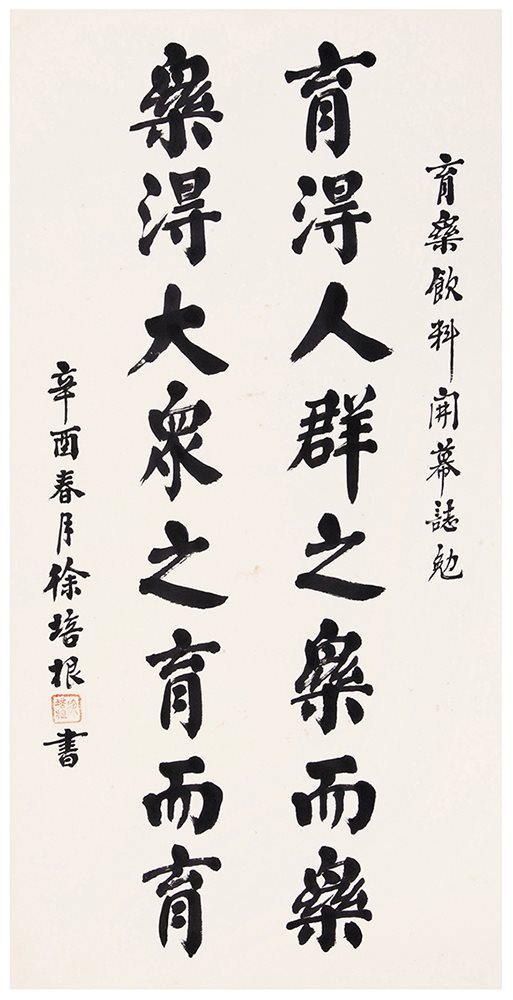 育樂飲料開幕誌勉
育得人群之樂而樂
樂得大眾之育而育
辛酉春月徐培根書